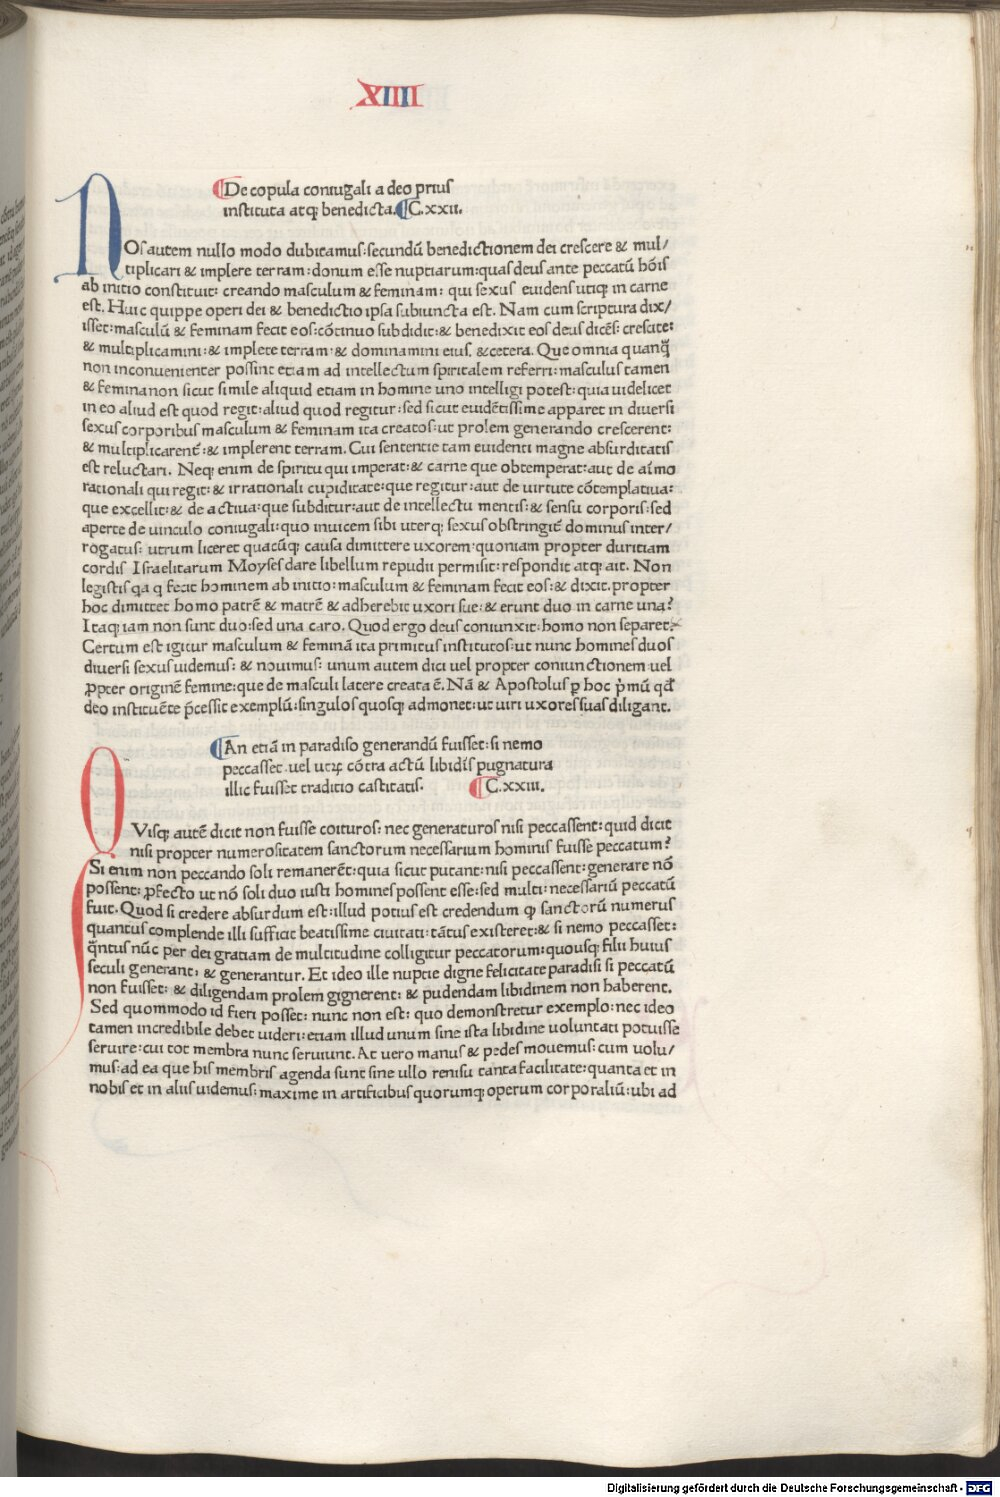 XIIII
¶De copula coniugali a deo prius
instituta atq; benedicta.¶C.xxii.
NOs autem nullo modo dubitamus:secundū benedictionem dei crescere & mul/
tiplicari & implere terram:donum esse nuptiarum:quas deus ante peccatū hōis
ab initio constituit: creando masculum & feminam: qui sexus euidens utiq; in carne
est. Huic quippe operi dei & benedictio ipsa subiuncta est. Nam cum scriptura dix/
isset:masculū & feminam fecit eos:cōtinuo subdidit:& benedixit eos deus dicēs: crescite:
& multiplicamini:& implete terram:& dominamini eius. &cetera. Que omnia quanq̄
non inconuenienter possint etiam ad intellectum spiritalem referri:masculus tamen
& femina non sicut simile aliquid etiam in homine uno intelligi potest:quia uidelicet
in eo aliud est quod regit:aliud quod regitur:sed sicut euidētissime apparet in diuersi
sexus corporibus masculum & feminam ita creatos:ut prolem generando crescerent:
& multiplicarent̄:& implerent terram. Cui sententie tam euidenti magne absurditatis
est reluctari. Neq; enim de spiritu qui imperat:& carne que obtemperat:aut de aīmo
rationali qui regit:& irrationali cupiditate:que regitur:aut de uirtute cōtemplatiua:
que excellit:& de actiua:que subditur:aut de intellectu mentis:& sensu corporis:sed
aperte de uinculo coniugali:quo inuicem sibi uterq; sexus obstringit̄ dominus inter/
rogatus: utrum liceret quacūq; causa dimittere uxorem:quoniam propter duritiam
cordis Israelitarum Moyses dare libellum repudii permisit:respondit atq; ait. Non
legistis qa q fecit hominem ab initio:masculum & feminam fecit eos:& dixit.propter
hoc dimittet homo patrē & matrē & adherebit uxori sue:& erunt duo in carne una?
Itaq; iam non sunt duo:sed una caro. Quod ergo deus coniunxit:homo non separet.
Certum est igitur masculum & feminā ita primitus institutos:ut nunc homines duos
diuersi sexus uidemus:& nouimus: unum autem dici uel propter coniunctionem uel
ꝓpter originē femine:que de masculi latere creata ē. Nā & Apostolus ꝑ hoc p̄mū qd̄
deo instituēte p̄cessit exemplū:singulos quosq; admonet:ut uiri uxores suas diligant.
¶An etiā in paradiso generandū fuisset:si nemo
peccasset uel utrꝝ cōtra actū libidis pugnatura
illic fuisset traditio castitatis. ¶C.xxiii.
QVisq; autē dicit non fuisse coituros: nec generaturos nisi peccassent:quid dicit
nisi propter numerositatem sanctorum necessarium hominis fuisse peccatum?
Si enim non peccando soli remanerēt:quia sicut putant:nisi peccassent:generare nō
possent:ꝓfecto ut nō soli duo iusti homines possent esse:sed multi:necessariū peccatū
fuit. Quod si credere absurdum est:illud potius est credendum ꝙ sanctorū numerus
quantus complende illi sufficit beatissime ciuitati:tātus existeret:& si nemo peccasset:
q̄ntus nūc per dei gratiam de multitudine colligitur peccatorum:quousq; filii huius
seculi generant: & generantur. Et ideo ille nuptie digne felicitate paradisi si peccatū
non fuisset: & diligendam prolem gignerent: & pudendam libidinem non haberent.
Sed quommodo id fieri posset: nunc non est: quo demonstretur exemplo:nec ideo
tamen incredibile debet uideri:etiam illud unum sine ista libidine uoluntati potuisse
seruire:cui tot membra nunc seruiunt. At uero manus & pedes mouemus:cum uolu/
mus:ad ea que his membris agenda sunt sine ullo renisu tanta facilitate:quanta et in
nobis et in aliis uidemus:maxime in artificibus quorumq; operum corporaliū:ubi ad
Digitalisierung gefördert durch die Deutsche Forschungsgemeinschaft - DFG